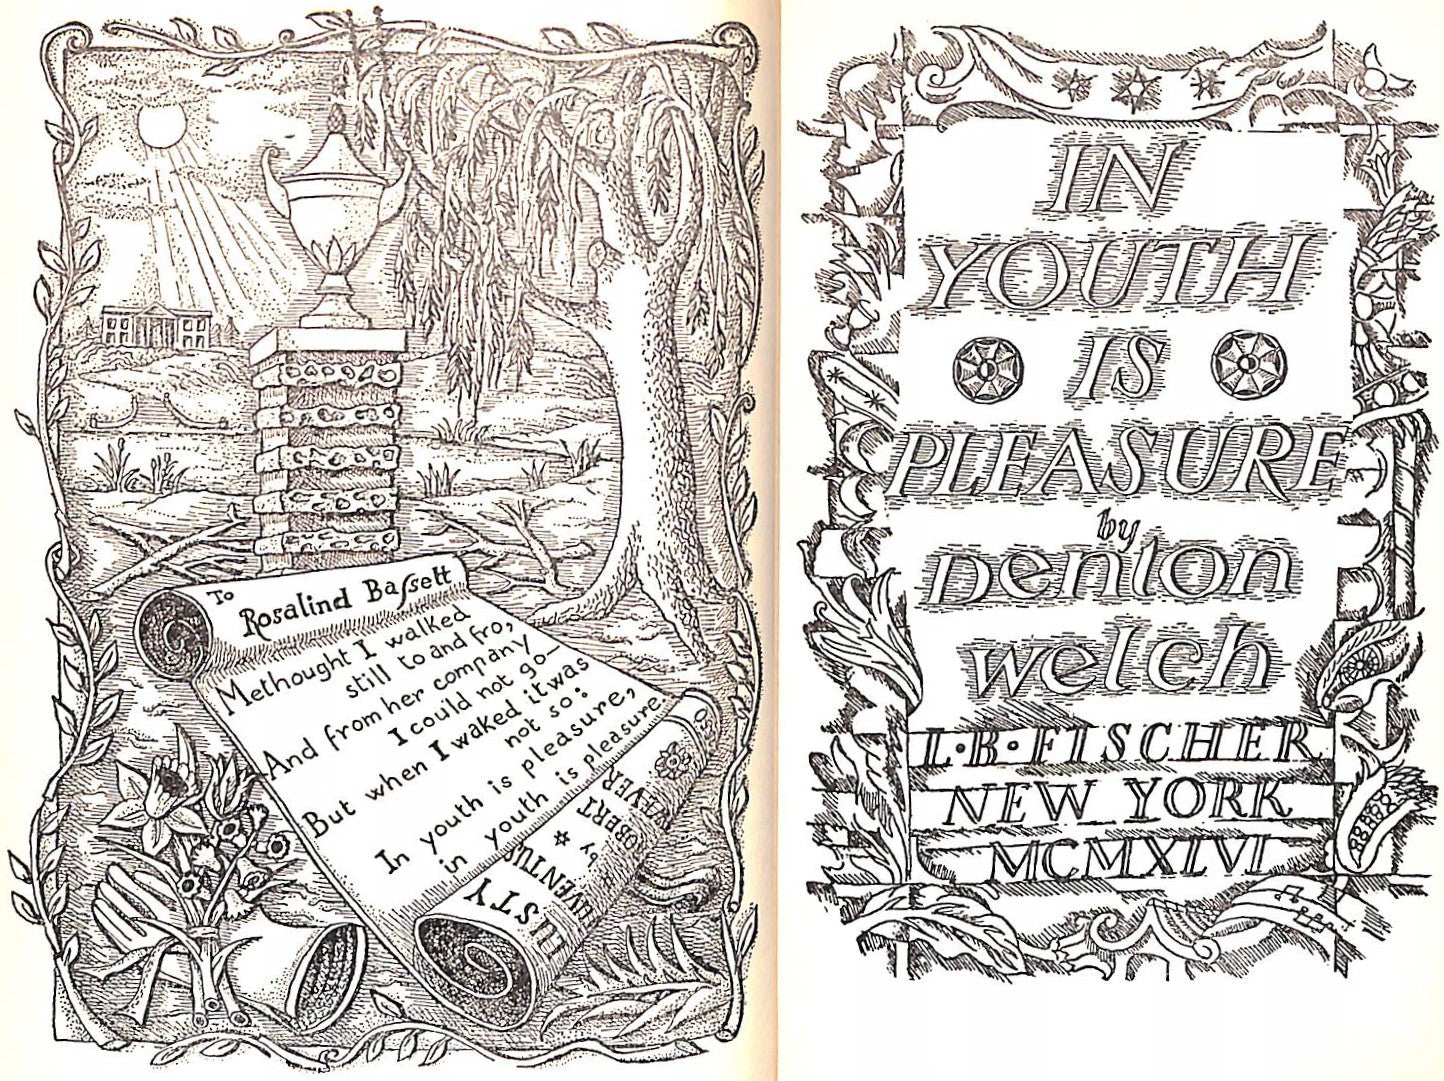 To
Rosalind Baſsett
Methought I walked
still to and fro,
And from her company
I could not go—
But when I waked it was
not so:
In youth is pleasure,
in youth is pleasure.
LUSTY
JUVENTUS
by
ROBERT
WEAVER
IN
YOUTH
IS
PLEASURE
by
Denton
welch
L·B·FISCHER
NEW YORK
MCMXLVI